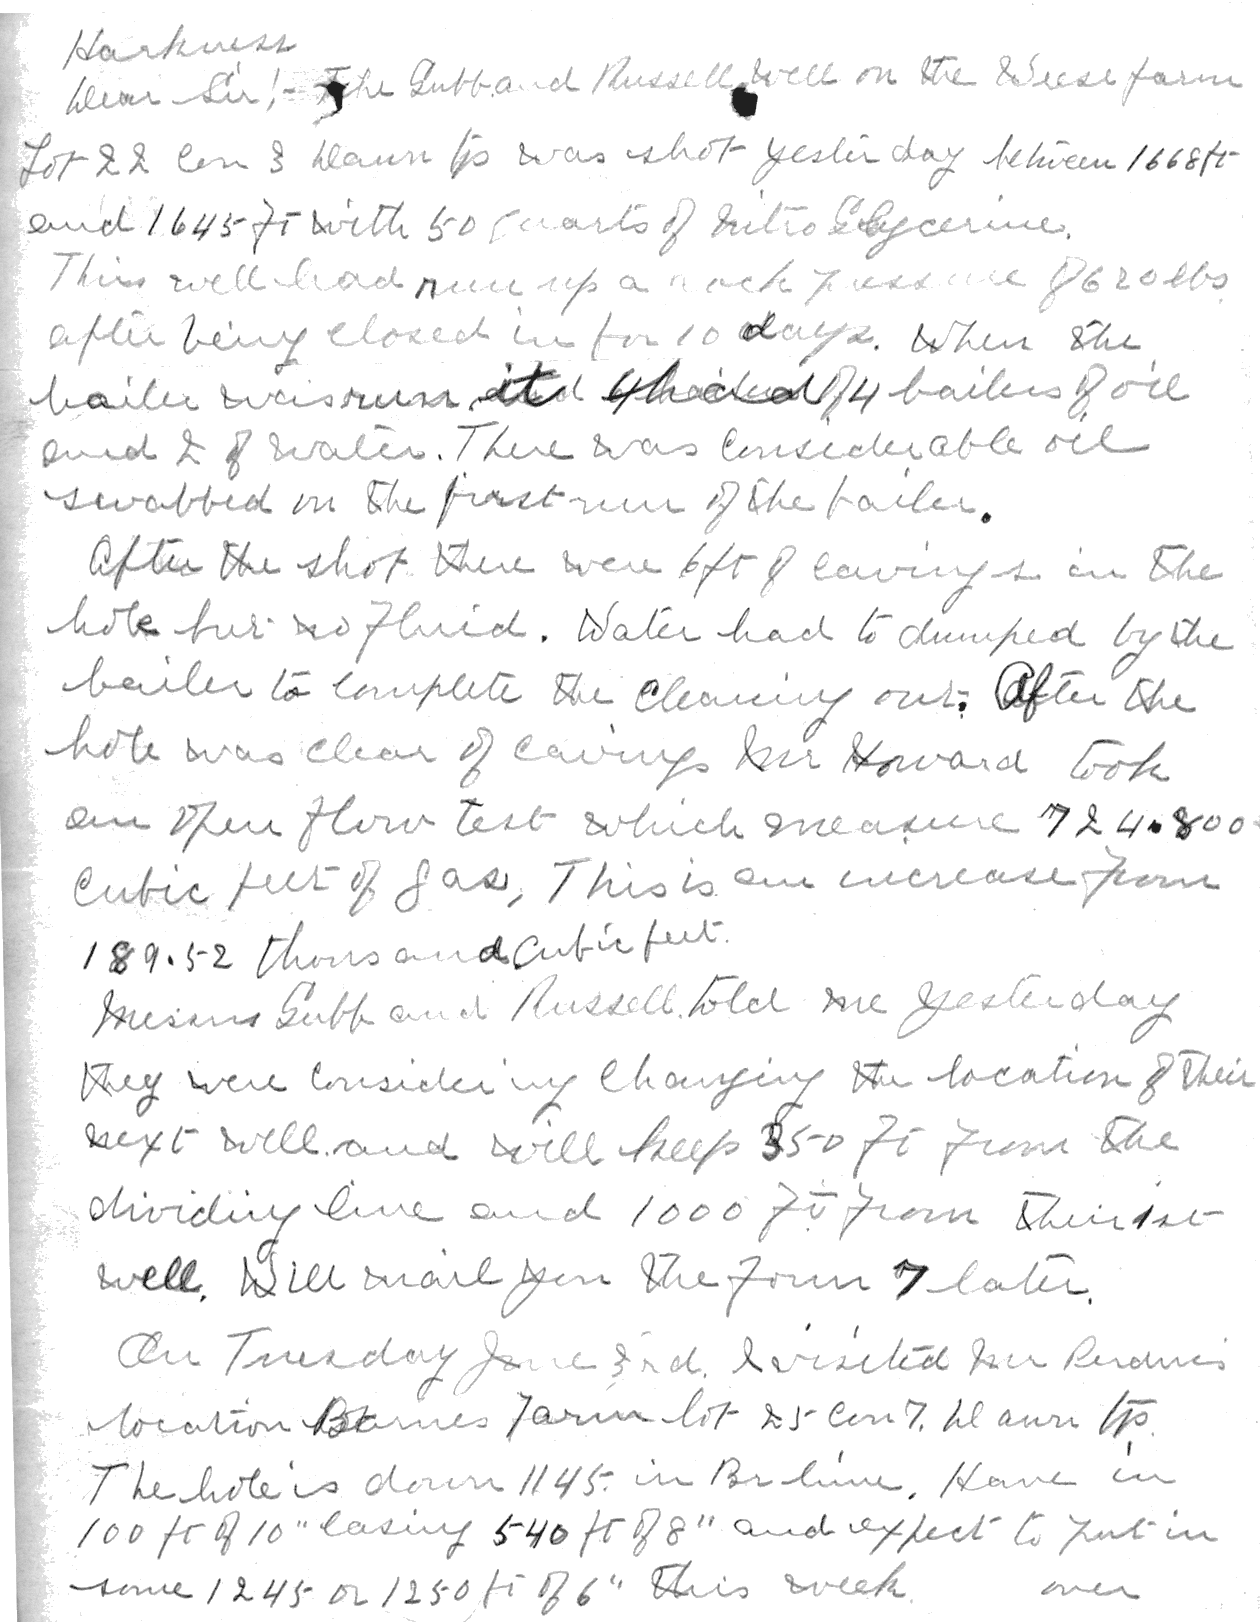 Harkness
Dear Sir!- The Gubb and Russell well on the Weese farm
Lot 22 Con 3 Dawn tp was shot yesterday between 1668 ft
and 1645 ft with 50 quarts of Nitro Glycerine.
This well had run up a rock pressure of 620 lbs
after being closed in for 10 days. When the
bailer was run it had of 4 bailers of oil
and 2 of water. There was considerable oil
swabbed on the first run of the bailer.
After the shot there were 6 ft of cavings in the
hole but no fluid. Water had to dumped by the
bailer to complete the cleaning out. After the
hole was clear of cavings Mr Howard took
an open flow test which measure 724.800
cubic feet of gas, This is an increase from
189.52 thousand cubic feet.
Messrs Gubb and Russell told me yesterday
they were considering changing the location of their
next well and will keep 350 ft from the
dividing line and 1000 ft from their 1st
well. Will mail you the form 7 later.
On Tuesday June 3rd. I visited Mr
location Barnes Farm lot 25 Con 7. Dawn tp.
The hole is down 1145 in Br lime. Have in
100 ft of 10" casing 540 ft of 8" and expect to put in
some 1245 or 1250 ft of 6" this week over